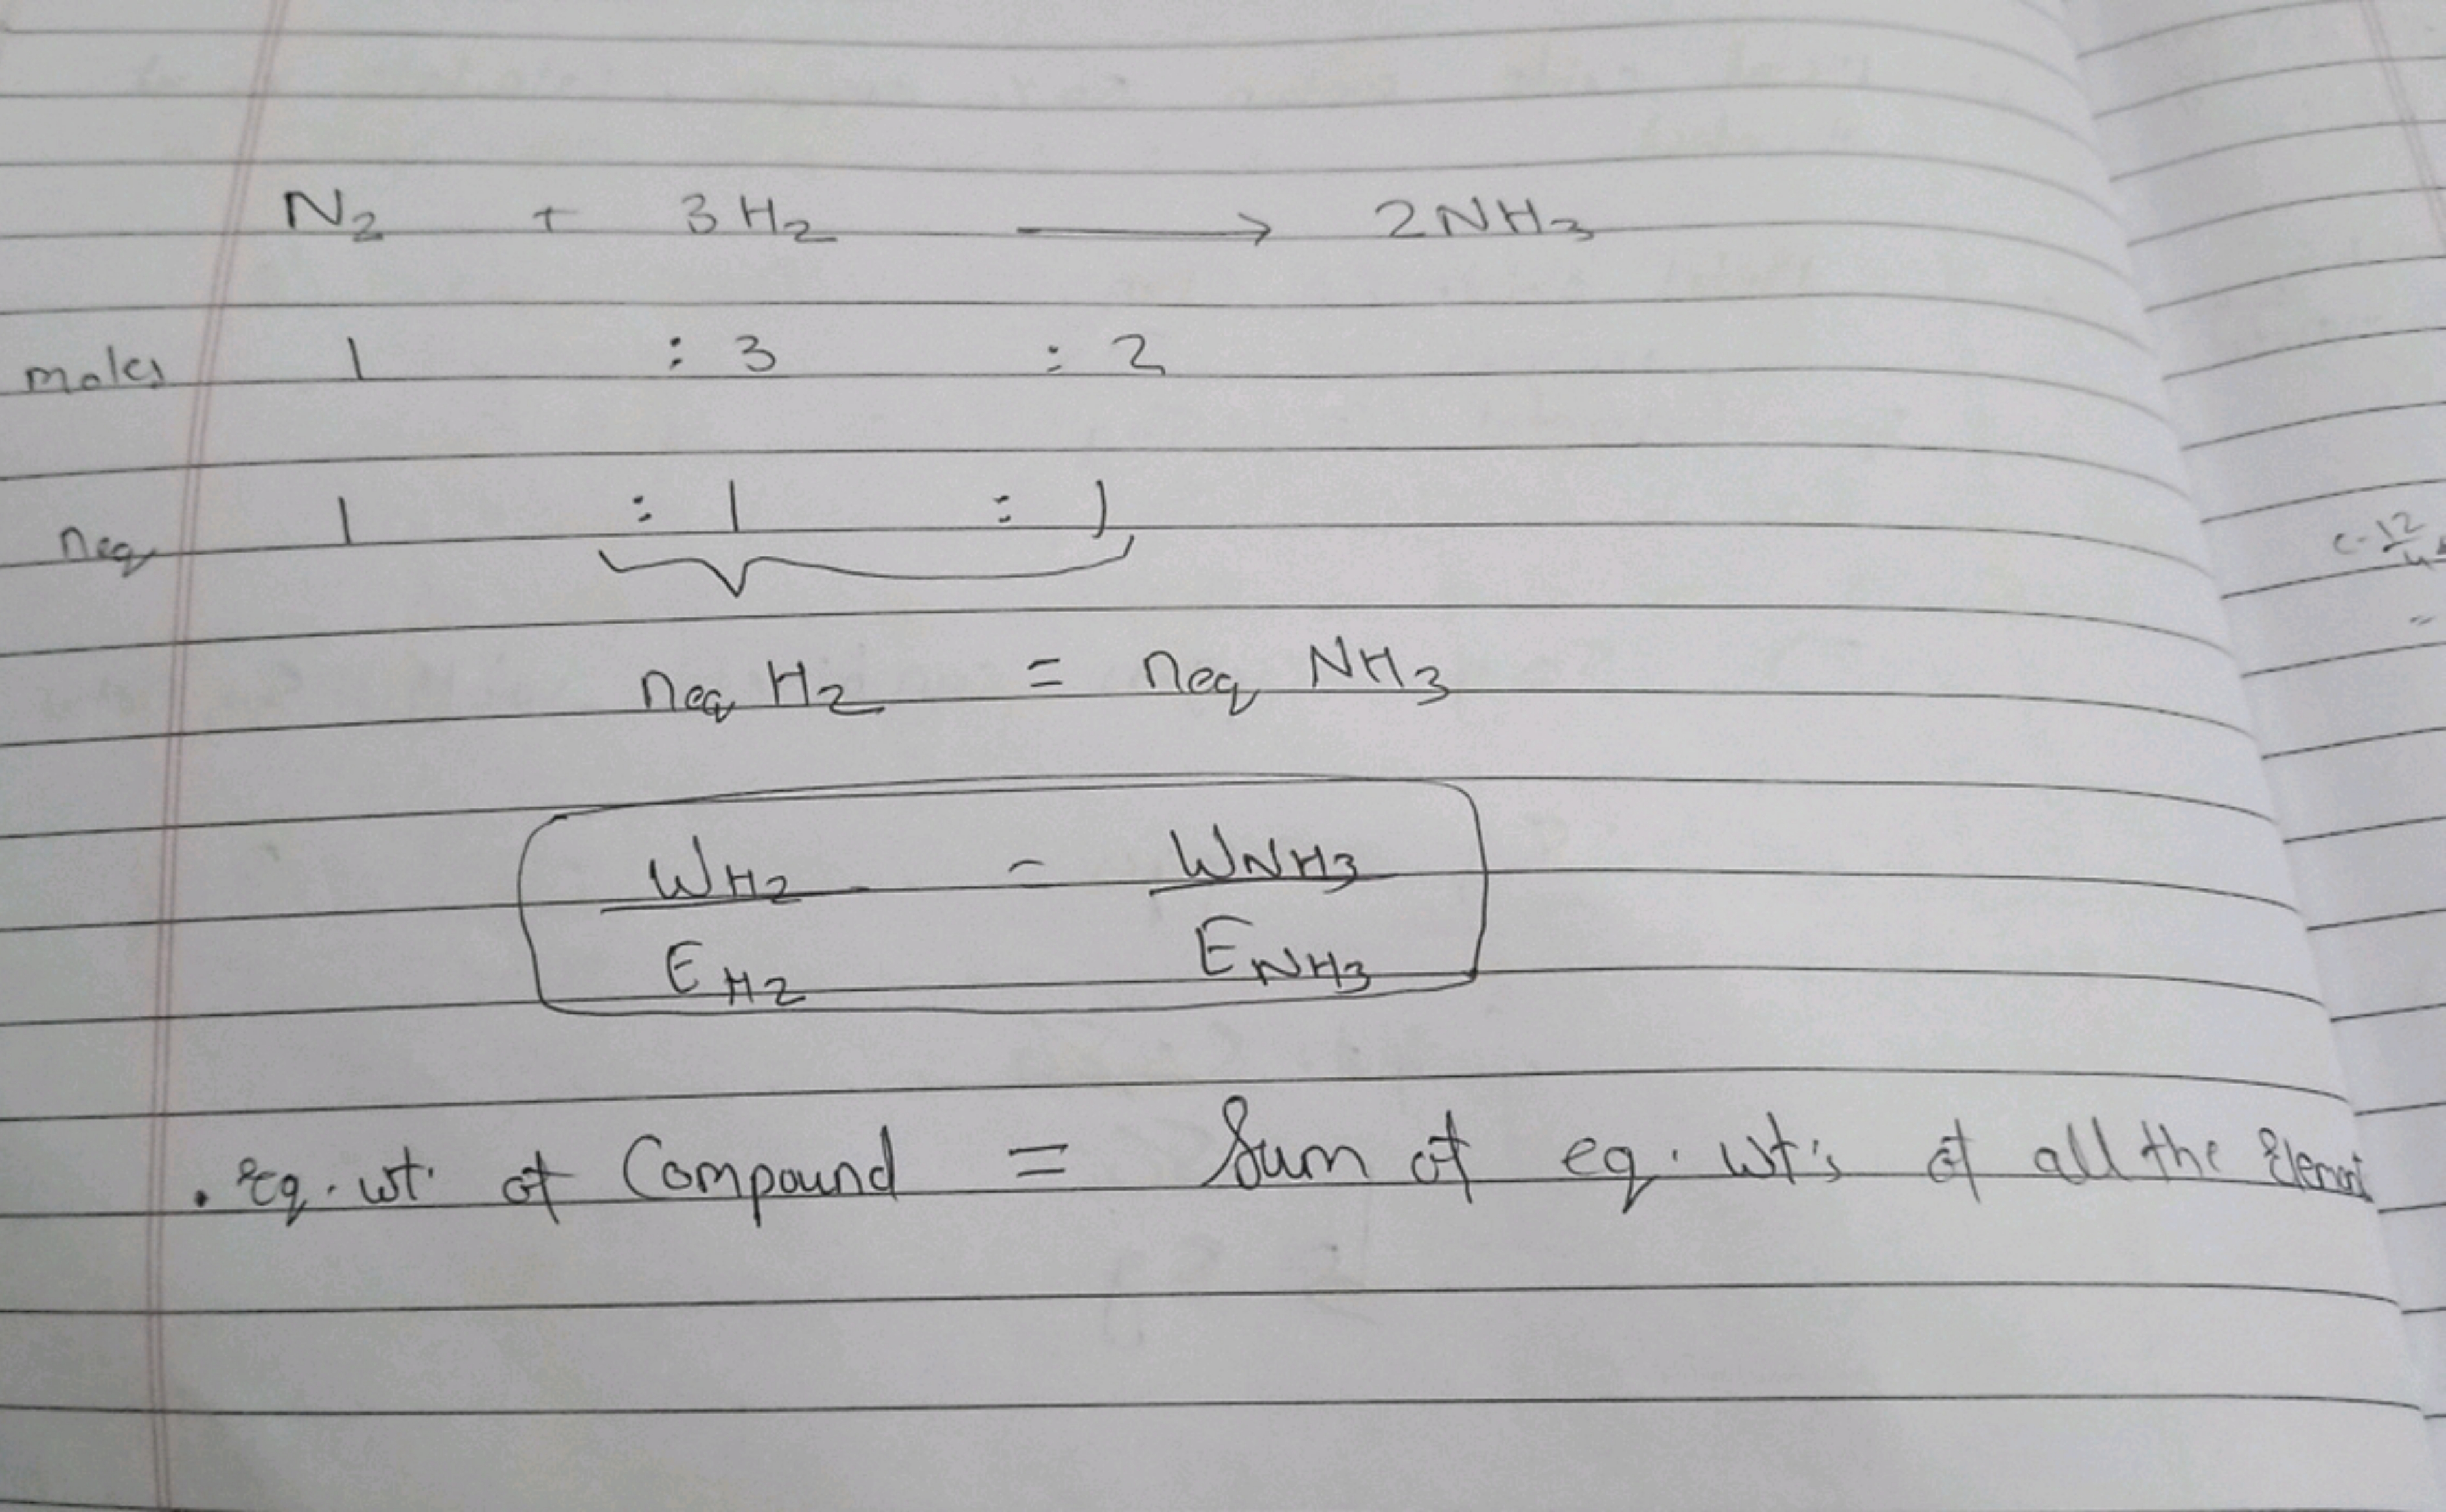 N₂ + 3H₂ ⟶ 2NH₃
moles 1 : 3 : 2
neq 1 : 1 : 1
neq H₂ = neq NH₃
W H₂ / E H₂ = W NH₃ / E NH₃
. Eq. wt. of Compound = Sum of eq. wt's of all the Element
C-12/4